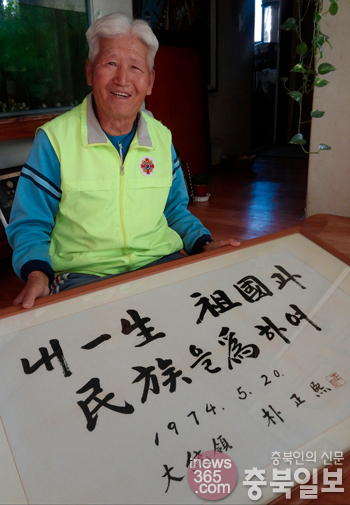 내一生 祖國과
民族을 爲하여
1974. 5. 20.
大統領 朴正熙
inews
365.com
충북인의 신문
충북일보